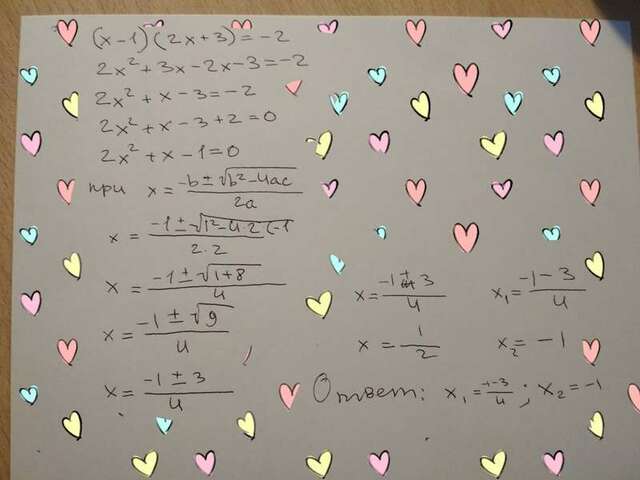 (x-1)(2x+3)=-2
2x²+3x-2x-3=-2
2x²+x-3=-2
2x²+x-3+2=0
2x²+x-1=0
при x = (-b±√(b²-4ac))/2a
x = (-1±√(1²-4·2(-1))/2·2
x = (-1±√(1+8))/4
x = (-1±√9)/4
x = (-1±3)/4
x = (-1+3)/4
x = 1/2
x₁ = (-1-3)/4
x₂ = -1
Ответ: x₁ = /4; x₂ = -1